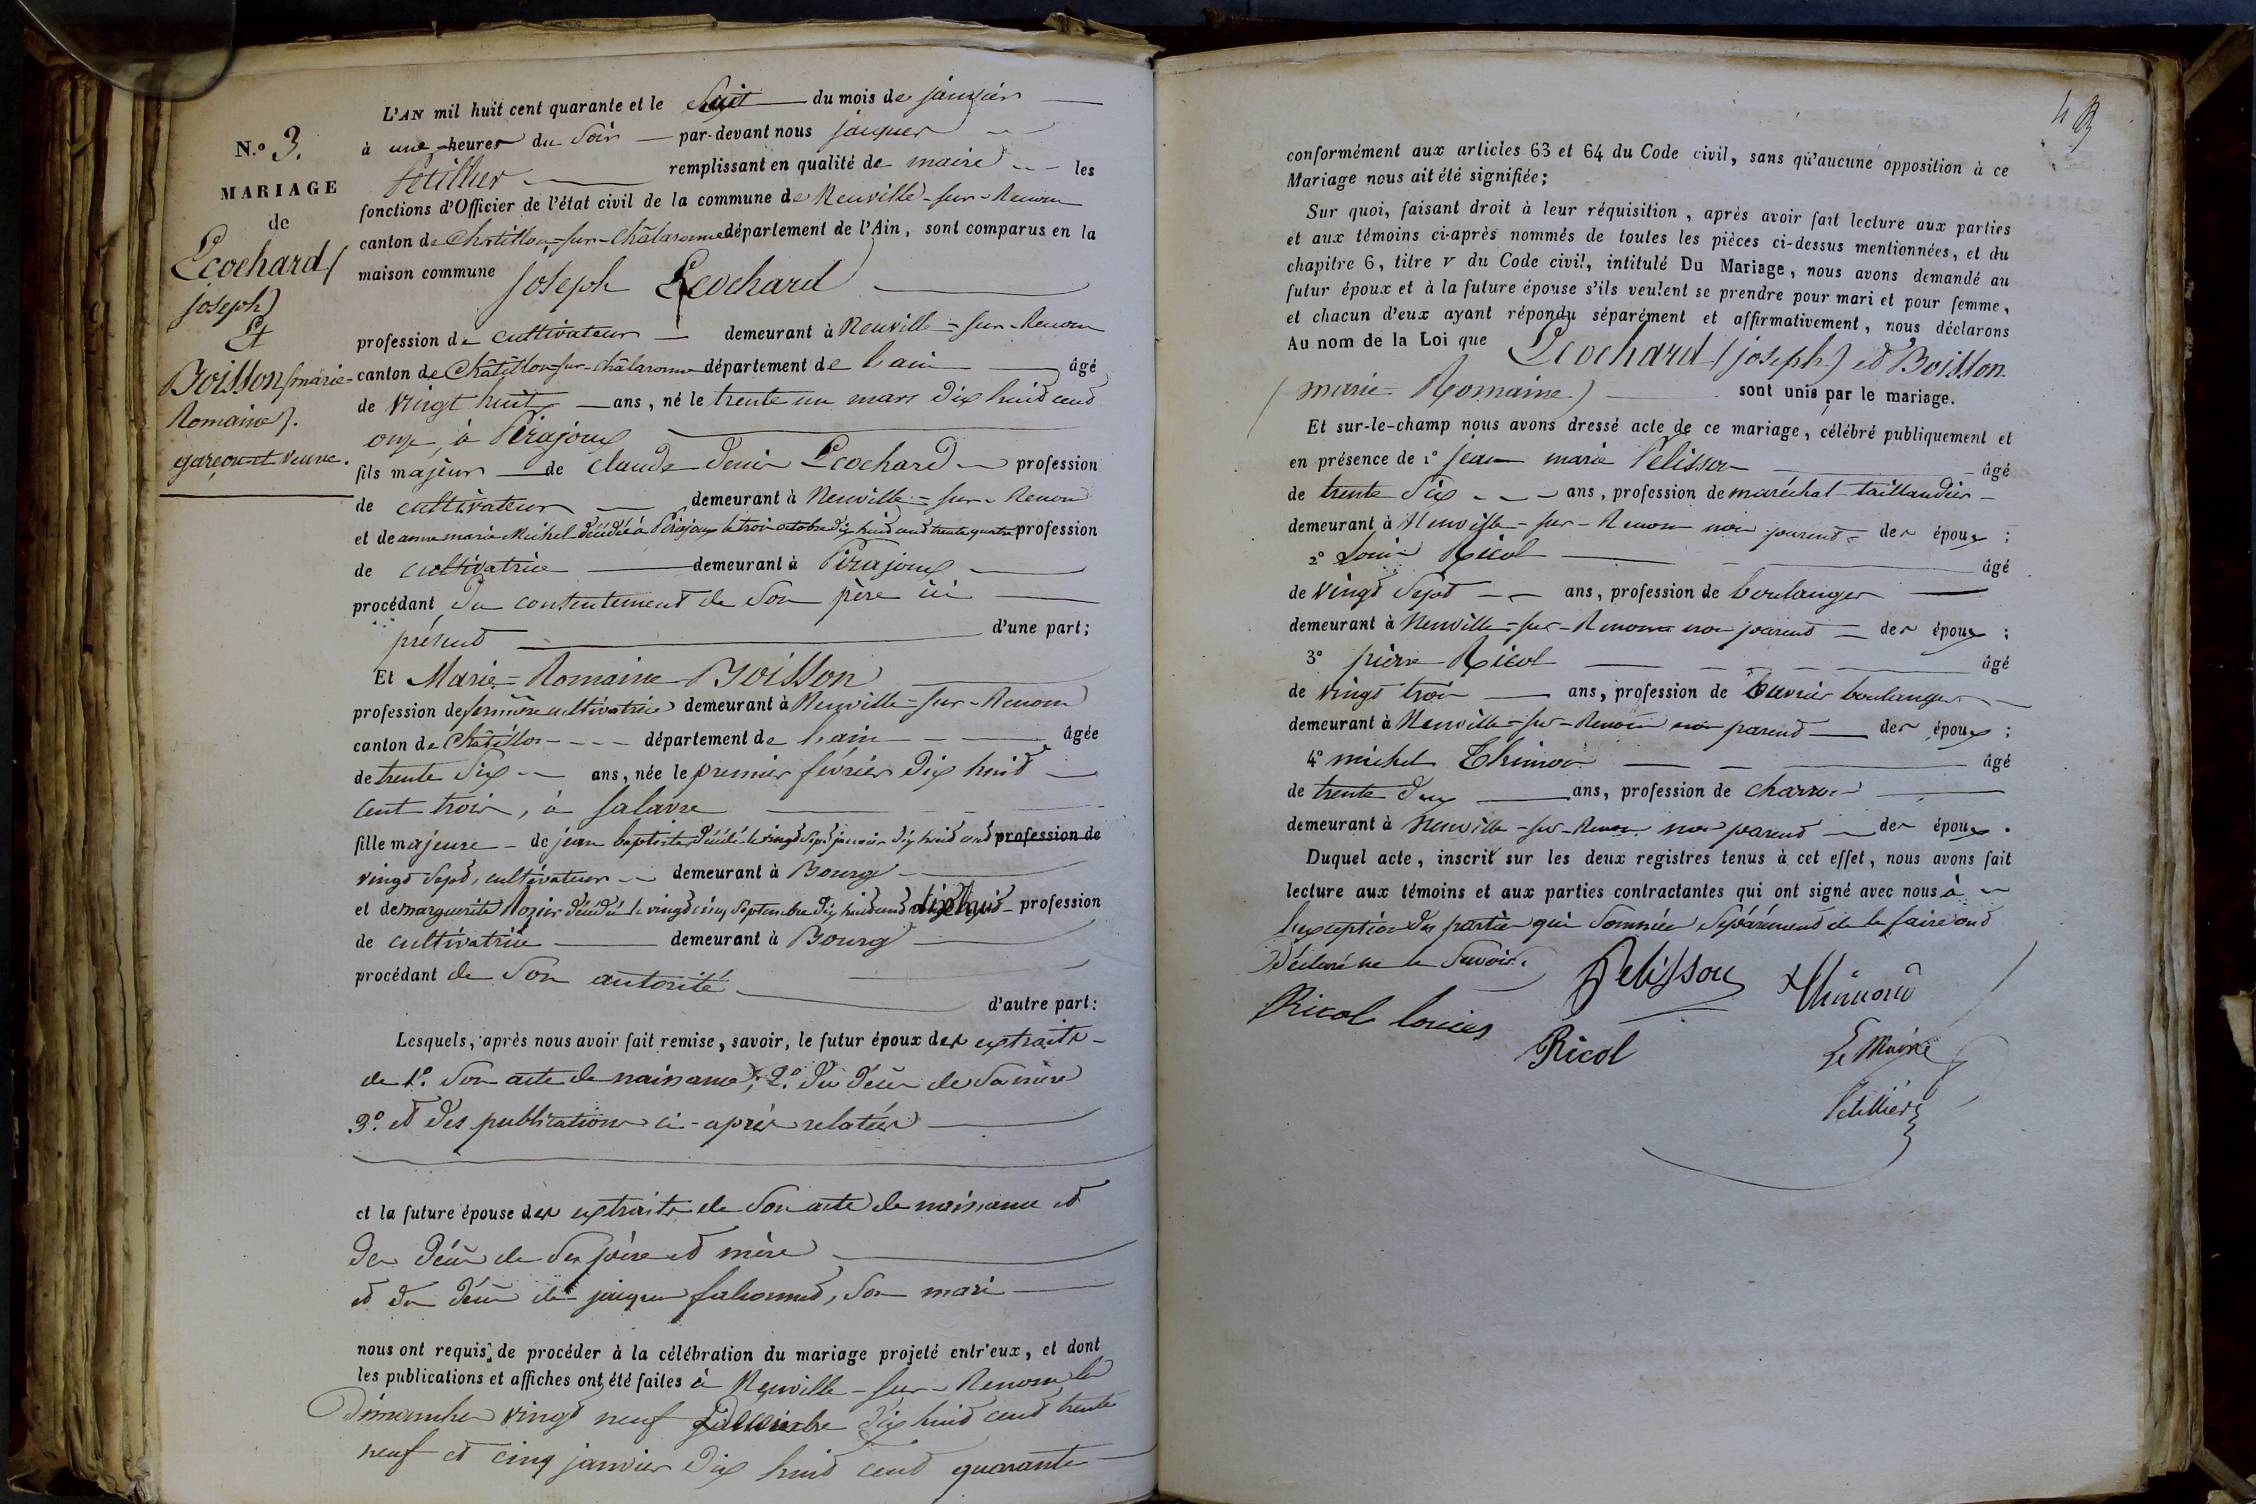 N.o 3.
MARIAGE
de
Ecochard (
joseph)
Et
Boisson (marie-
Romaine).
garçon et veuve.
L'AN mil huit cent quarante et le huit du mois de janvier
à une heures du soir par-devant nous jacques
Pétillier remplissant en qualité de maire les
fonctions d'Officier de l'état civil de la commune de Neuville-sur-Renom
canton de Châtillon-sur-Châlaronne département de l'Ain, sont comparus en la
maison commune Joseph Ecochard
profession de cultivateur demeurant à Neuville-sur-Renom
canton de Châtillon-sur-Châlaronne département de l'ain âgé
de vingt huit ans, né le trente un mars dix huit cent
onze, à Pirajoux
fils majeur de claude denis Ecochard profession
de cultivateur demeurant à Neuville-sur-Renom
et de anne marie Michel décédée à Pirajoux le trois octobre dix huit cent trente quatre profession
de cultivatrice demeurant à Pirajoux
procédant du consentement de son père ici
présent d'une part;
Et Marie-Romaine Boisson
profession de fermière cultivatrice demeurant à Neuville-sur-Renom
canton de Châtillon département de l'ain âgée
de trente six ans, née le premier février dix huit
cent trois, à Salavre
fille majeure de jean baptiste décédé le vingt sept janvier dix huit cent profession de
vingt sept, cultivateur demeurant à Bourg
et de marguerite Rozier décédée le vingt cinq septembre dix huit cent dix huit profession
de cultivatrice demeurant à Bourg
procédant de son autorité
d'autre part:
Lesquels, après nous avoir fait remise, savoir, le futur époux des extraits
de 1.o son acte de naissance; 2.o du décès de sa mère
3.o et des publications ci-après relatées
et la future épouse des extraits de son acte de naissance et
des décès de ses père et mère
et du décès de jacques , son mari
nous ont requis de procéder à la célébration du mariage projeté entr'eux, et dont
les publications et affiches ont été faites à Neuville-sur-Renom les
dimanches vingt neuf décembre dix huit cent trente
neuf et cinq janvier dix huit cent quarante
conformément aux articles 63 et 64 du Code civil, sans qu'aucune opposition à ce
Mariage nous ait été signifiée;
Sur quoi, faisant droit à leur réquisition, après avoir fait lecture aux parties
et aux témoins ci-après nommés de toutes les pièces ci-dessus mentionnées, et du
chapitre 6, titre v du Code civil, intitulé Du Mariage, nous avons demandé au
futur époux et à la future épouse s'ils veulent se prendre pour mari et pour femme,
et chacun d'eux ayant répondu séparément et affirmativement, nous déclarons
Au nom de la Loi que Ecochard (joseph) et Boisson
(marie-Romaine) sont unis par le mariage.
Et sur-le-champ nous avons dressé acte de ce mariage, célébré publiquement et
en présence de 1o jean marie Pelisson âgé
de trente six ans, profession de maréchal-taillandier
demeurant à Neuville-sur-Renom non parent des époux;
2o Louis Ricol âgé
de vingt sept ans, profession de boulanger
demeurant à Neuville-sur-Renom non parent des époux;
3o pierre Ricol âgé
de vingt trois ans, profession de ouvrier boulanger
demeurant à Neuville-sur-Renom non parent des époux;
4o michel Thimon âgé
de trente deux ans, profession de charron
demeurant à Neuville-sur-Renom non parent des époux.
Duquel acte, inscrit sur les deux registres tenus à cet effet, nous avons fait
lecture aux témoins et aux parties contractantes qui ont signé avec nous à
l'exception des parties qui sommées séparément de le faire ont
déclaré ne le savoir.
Pelisson
Ricol louis
Ricol
Le Maire
Pétillier